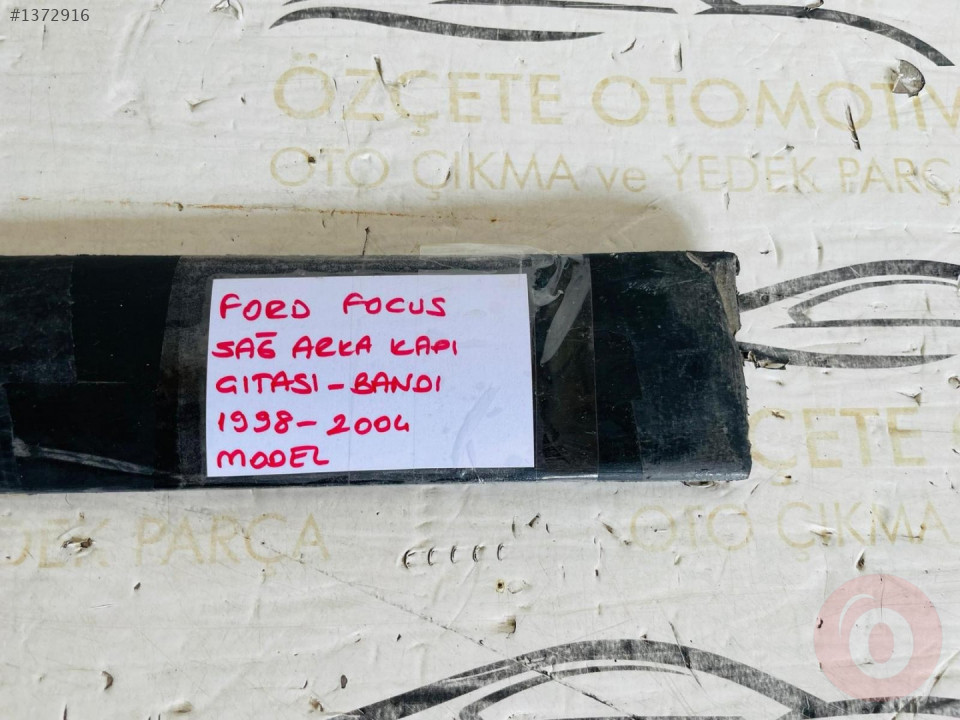 #1372916
ÖZÇETE OTOMOTİV
OTO ÇIKMA ve YEDEK PARÇA
FORD FOCUS
SAĞ ARKA KAPI
GITASI-BANDI
1998-2004
MODEL
ÇETE
YEDEK PARÇA
OTO ÇIKMA